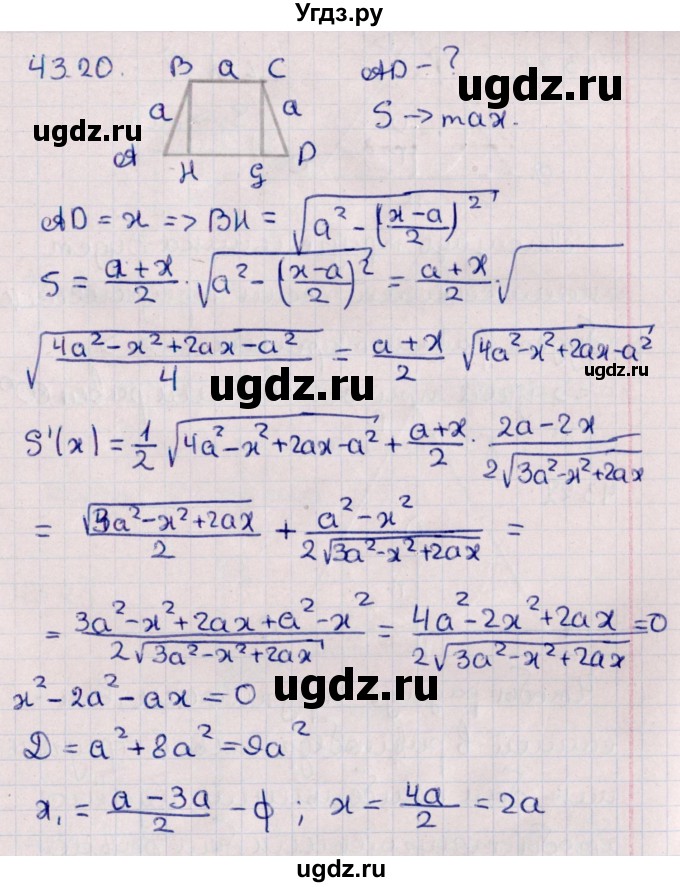 Угдз.ру
43.20. B a C AD - ?
a a S → max.
ugdz.ru ugdz.ru
A H G D
AD = x => BH = √(a² - ((x-a)/2)²)
S = (a+x)/2 · √(a² - ((x-a)/2)²) = (a+x)/2 · √
√((4a² - x² + 2ax - a²)/4) = (a+x)/2 √(4a² - x² + 2ax - a²)
ugdz.ru ugdz.ru
S'(x) = 1/2 √(4a² - x² + 2ax - a²) + (a+x)/2 · (2a - 2x)/(2√(3a² - x² + 2ax))
= √(3a² - x² + 2ax)/2 + (a² - x²)/(2√(3a² - x² + 2ax)) =
= (3a² - x² + 2ax + a² - x²)/(2√(3a² - x² + 2ax)) = (4a² - 2x² + 2ax)/(2√(3a² - x² + 2ax)) = 0
ugdz.ru
x² - 2a² - ax = 0
D = a² + 8a² = 9a²
x₁ = (a - 3a)/2 - ф ; x = 4a/2 = 2a
ugdz.ru